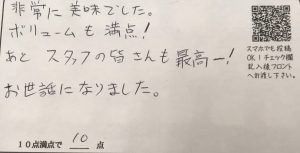 非常に美味でした。
ボリュームも満点!
あと スタッフの皆さんも最高ー!
お世話になりました。
スマホでも投稿
OK!チェック欄
記入後フロント
へお渡し下さい。
10点満点で 10 点